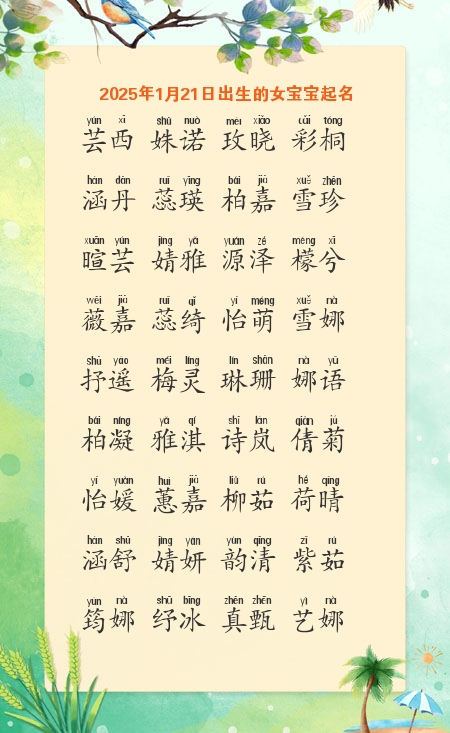 2025年1月21日出生的女宝宝起名
yún xī shū nuò méi xiǎo cǎi tóng
芸西 姝诺 玫晓 彩桐
hàn dān ruǐ yīng bǎi jiā xuě zhēn
涵丹 蕊瑛 柏嘉 雪珍
xuān yún jìng yǎ yuán zé méng xī
暄芸 婧雅 源泽 檬兮
wēi jiā ruǐ qǐ yí méng xuě nà
薇嘉 蕊绮 怡萌 雪娜
shū yáo méi líng lín shān nà yǔ
抒遥 梅灵 琳珊 娜语
bǎi níng yǎ qí shī lán qiàn jú
柏凝 雅淇 诗岚 倩菊
yí yuàn huì jiā liǔ rú hé qíng
怡媛 蕙嘉 柳茹 荷晴
hán shū jìng yán yùn qīng zǐ rú
涵舒 婧妍 韵清 紫茹
yún nà shū bīng zhēn zhēn yì nà
筠娜 纾冰 真甄 艺娜